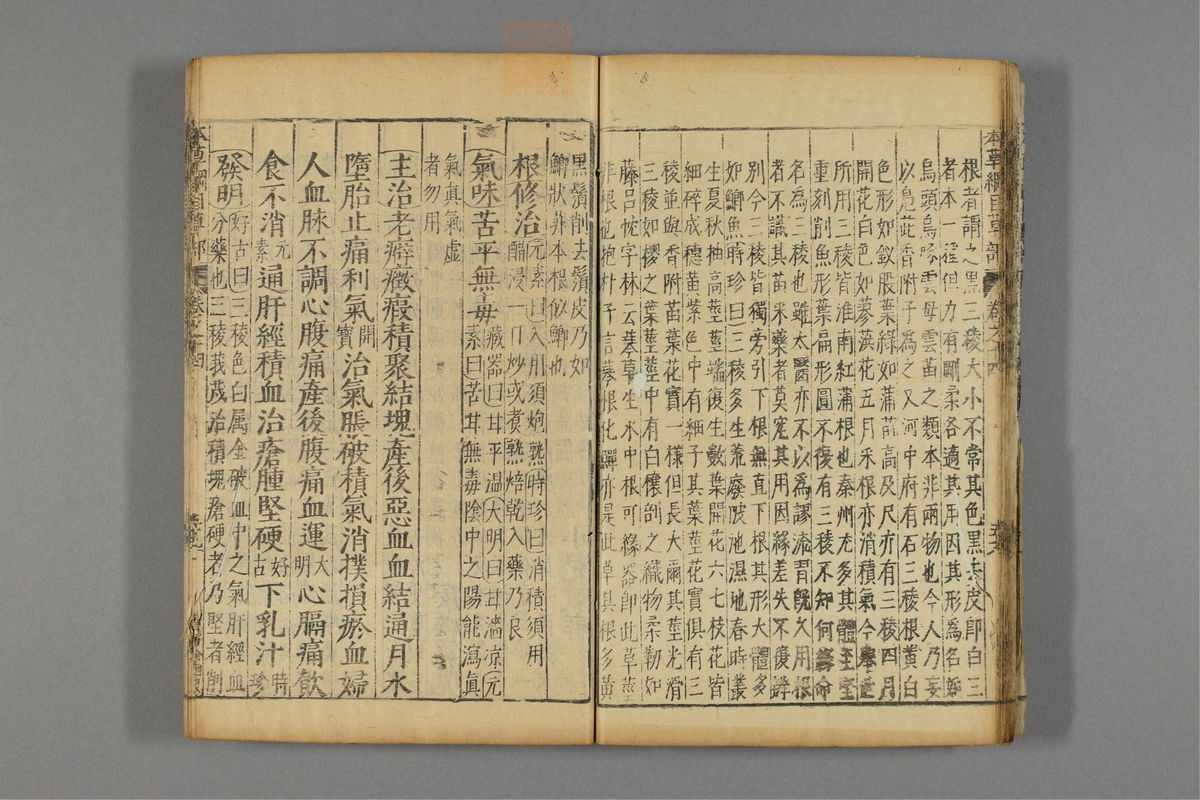 本草綱目草部 卷之十四
根者謂之黑三稜大小不常其色黑去皮即白三
者本一種但力有剛柔各適其用因其形爲名如
烏頭烏喙雲母雲苗之類本非兩物也今人乃妄
以鳧茈香附子爲之又河中府有石三稜根黃白
色形如釵股葉綠如蒲苗高及尺亦有三稜四月
開花白色如蓼葓花五月采根亦消積氣今舉世
所用三稜皆淮南紅蒲根也秦州尤多其體至堅
重刻削魚形葉扁形圓不復有三稜不知何緣命
名爲三稜也雖太醫亦不以爲謬流習既久用根
者不識其苗采藥者莫究其用因緣差失不復詳
別今三稜皆獨旁引下根無直下根其形大體多
如鯽魚時珍曰三稜多生荒廢陂池濕地春時叢
生夏秋抽高莖莖端復生數葉開花六七枝花皆
細碎成穗黃紫色中有細子其葉莖花實俱有三
稜並與香附苗葉花實一樣但長大爾其莖光滑
三稜如椶之葉莖莖中有白穰剖之織物柔韌如
藤呂忱字林云𦸣草生水中根可緣器即此草莖
非根也抱朴子言𦸣根化鱓亦是此草其根多黃
黑鬚削去鬚皮乃如
鯽狀非本根似鯽也
根修治元素曰入用須炮熟時珍曰消積須用
醋浸一日炒或煮熟焙乾入藥乃良
氣味苦平無毒藏器曰甘平温大明曰甘濇涼元
素曰苦甘無毒陰中之陽能瀉眞
氣眞氣虛
者勿用
主治老癖癥瘕積聚結塊產後惡血血結通月水
墮胎止痛利氣開寶治氣脹破積氣消撲損瘀血婦
人血脉不調心腹痛產後腹痛血運大明心膈痛飲
食不消元素通肝經積血治瘡腫堅硬好古下乳汁時珍
發明好古曰三稜色白属金破血中之氣肝經血
分藥也三稜莪茂治積塊瘡硬者乃堅者削
本草綱目草部 卷之十四